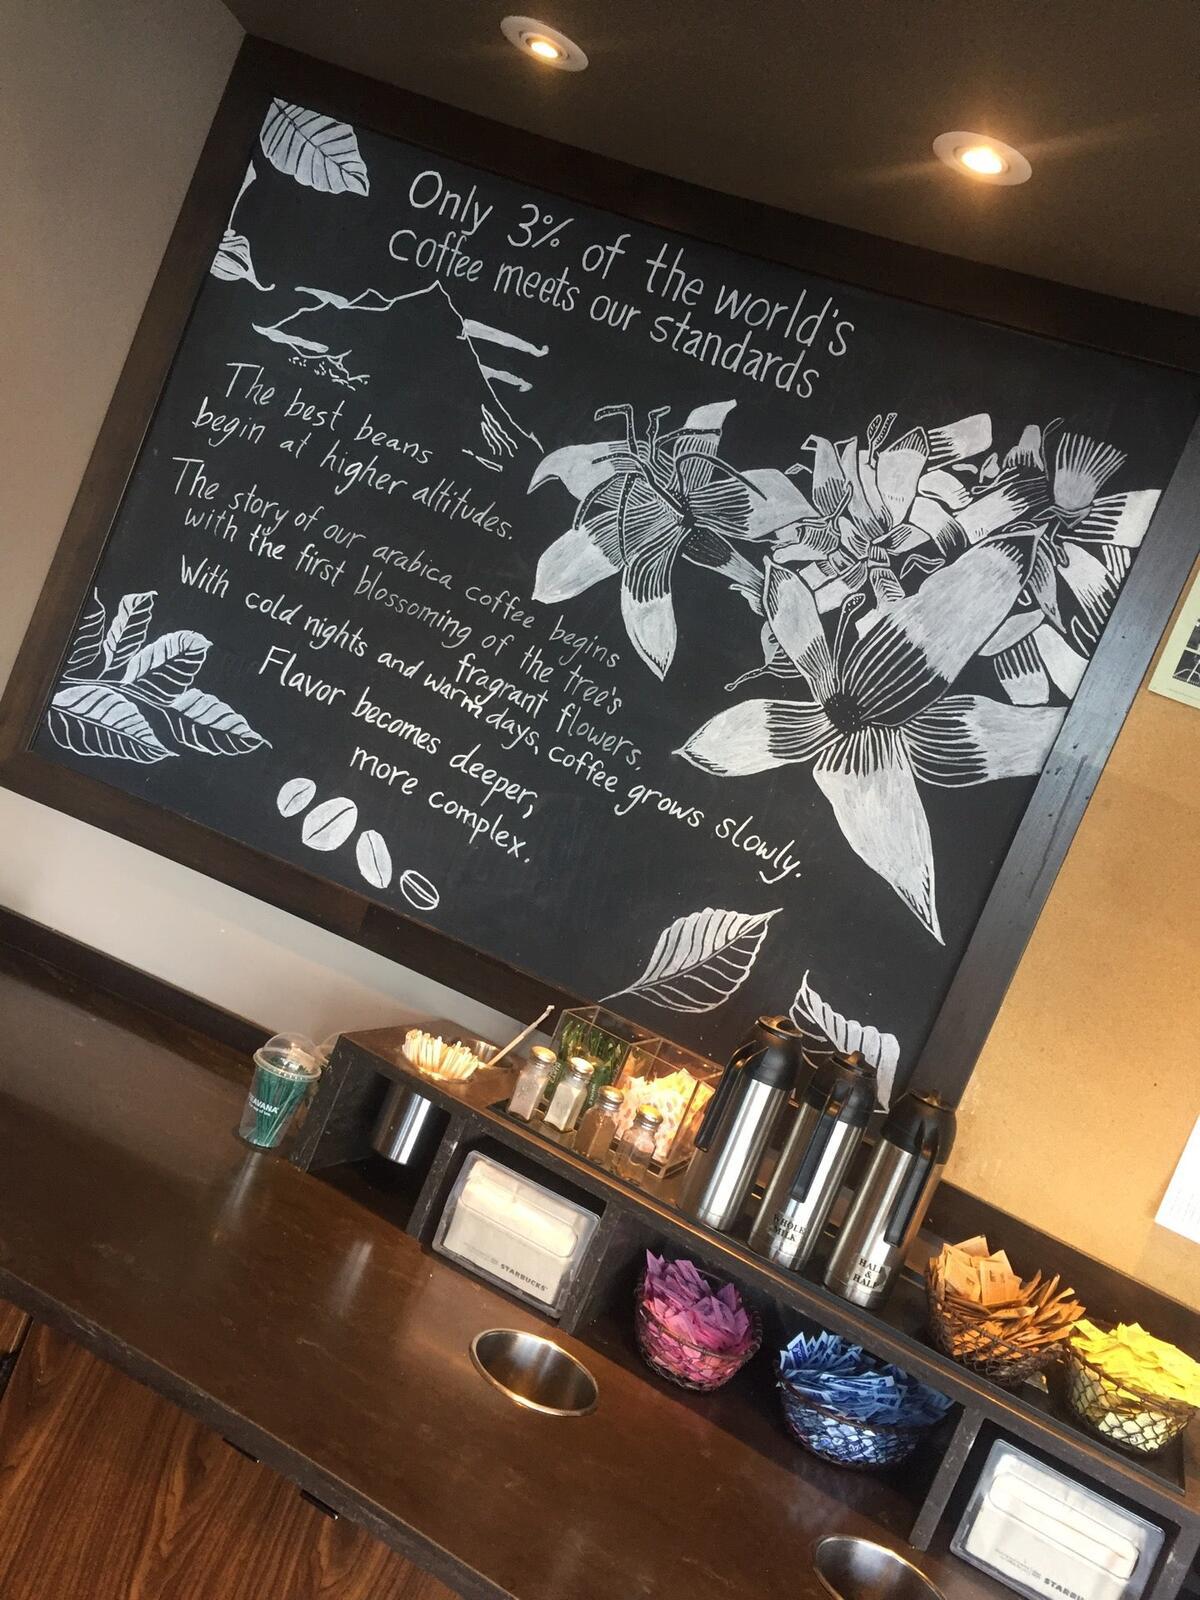 Only 3% of the world's
coffee meets our standards
The best beans
begin at higher altitudes.
The story of our arabica coffee begins
with the first blossoming of the tree's
fragrant flowers.
With cold nights and warm days, coffee grows slowly.
Flavor becomes deeper,
more complex.
WHOLE
MILK
HALF
&
HALF
STARBUCKS